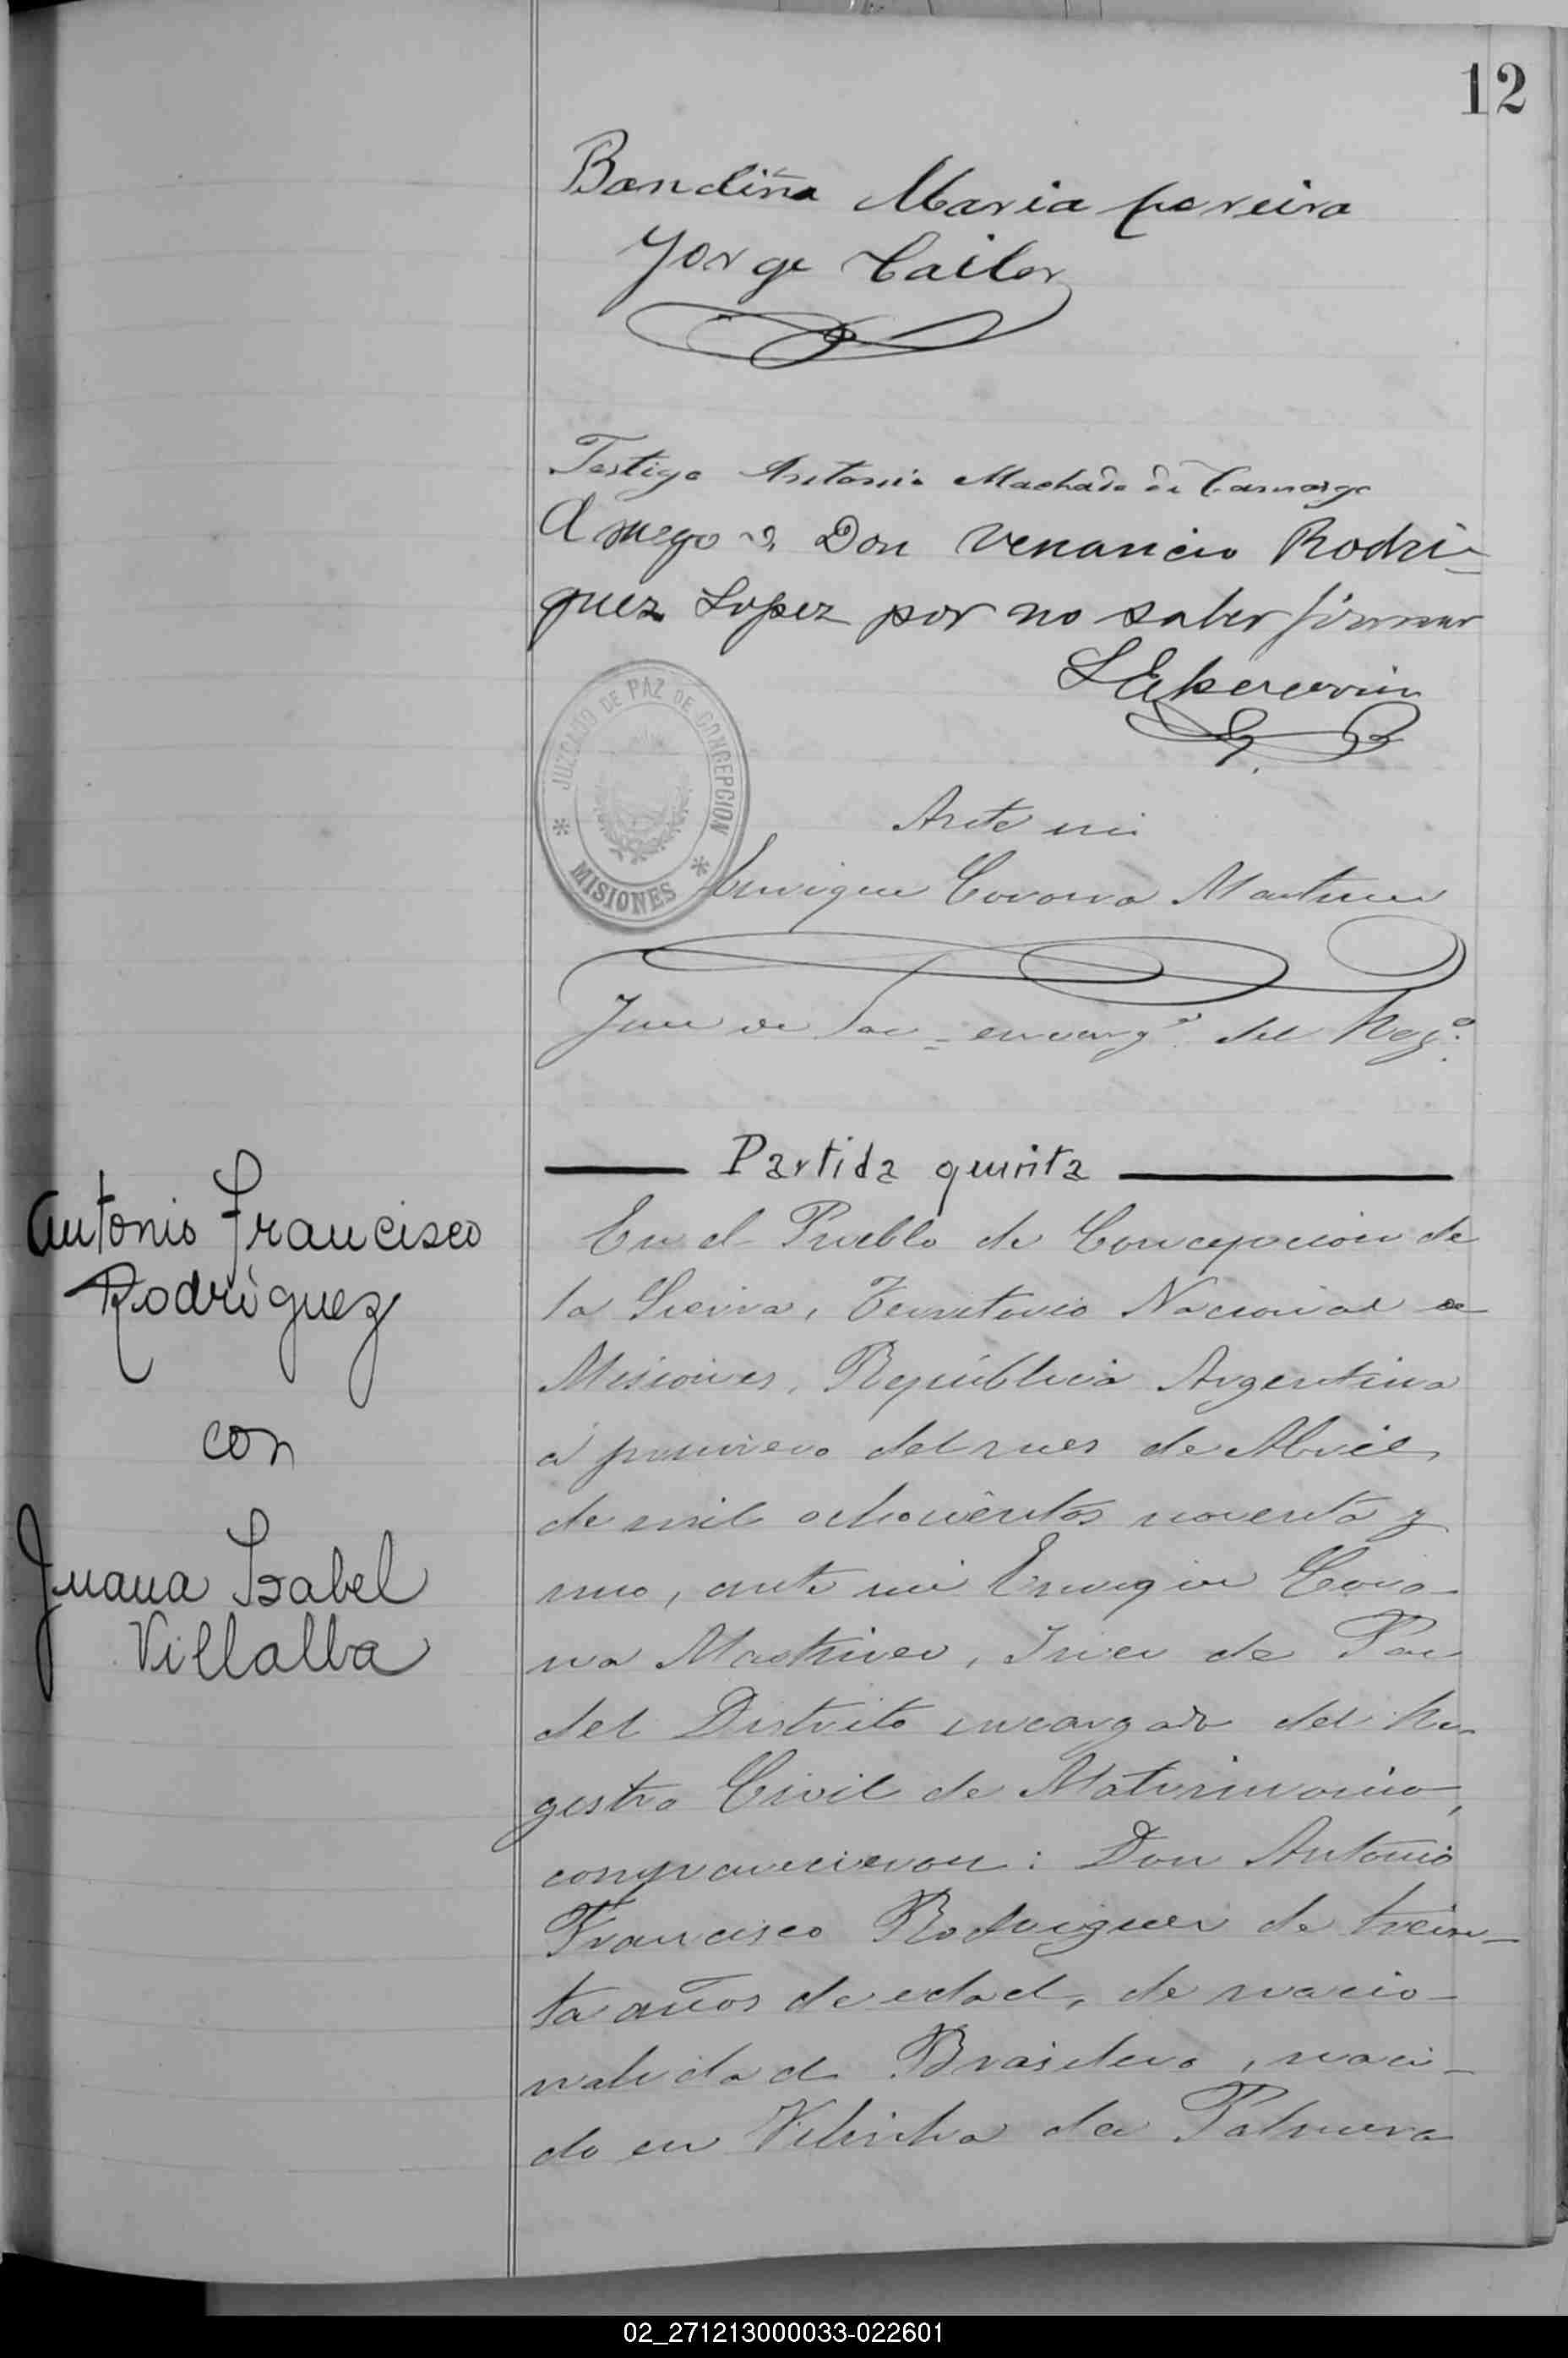 12
Bandiña Maria pereira
Jorge Tailor
Testigo Antonio Machado de Camargo
A ruego de Don Venancio Rodri-
guez Lopez por no saber firmar
JUZGADO DE PAZ DE CONCEPCION
MISIONES
Ante mi
Enrique Corona Martinez
Juez de Paz - encargdo. del Rego.
Partida quinta
Antonio Francisco
Rodriguez
con
Juana Isabel
Villalba
En el Pueblo de Concepcion de
la Sierra, Territorio Nacional de
Misiones, República Argentina
á primero del mes de Abril
de mil ochocientos noventa y
uno, ante mi Enrique Coro-
na Martinez, Juez de Paz
del Distrito encargado del Re-
gistro Civil de Matrimonio,
comparecieron: Don Antonio
Francisco Rodriguez de trein-
ta años de edad, de nacio-
nalidad Brasilero, naci-
do en Villinha da Palmera
02_271213000033-022601